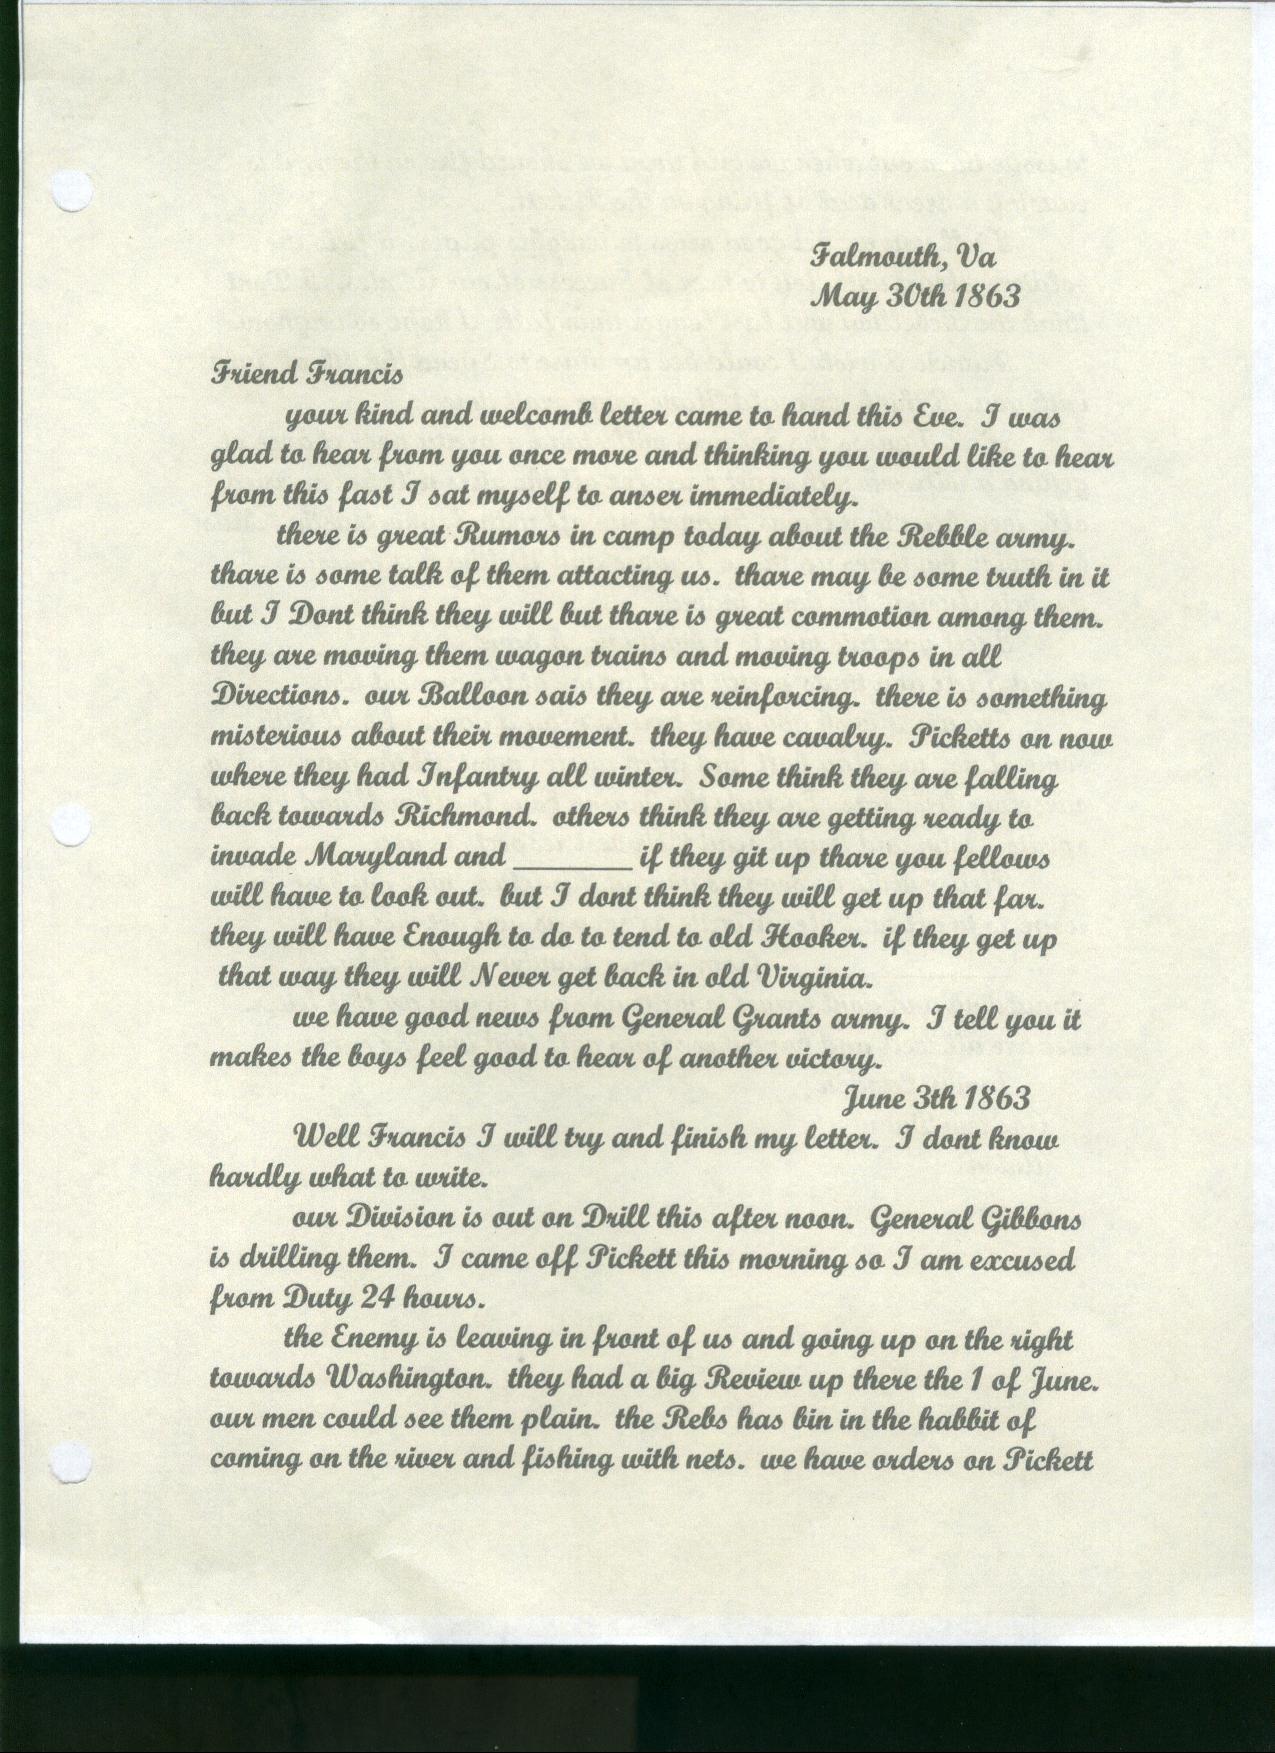 Falmouth, Va
May 30th 1863
Friend Francis
your kind and welcomb letter came to hand this Eve. I was
glad to hear from you once more and thinking you would like to hear
from this fast I sat myself to anser immediately.
there is great Rumors in camp today about the Rebble army.
thare is some talk of them attacting us. thare may be some truth in it
but I Dont think they will but thare is great commotion among them.
they are moving them wagon trains and moving troops in all
Directions. our Balloon sais they are reinforcing. there is something
misterious about their movement. they have cavalry. Picketts on now
where they had Infantry all winter. Some think they are falling
back towards Richmond. others think they are getting ready to
invade Maryland and ________ if they git up thare you fellows
will have to look out. but I dont think they will get up that far.
they will have Enough to do to tend to old Hooker. if they get up
that way they will Never get back in old Virginia.
we have good news from General Grants army. I tell you it
makes the boys feel good to hear of another victory.
June 3th 1863
Well Francis I will try and finish my letter. I dont know
hardly what to write.
our Division is out on Drill this after noon. General Gibbons
is drilling them. I came off Pickett this morning so I am excused
from Duty 24 hours.
the Enemy is leaving in front of us and going up on the right
towards Washington. they had a big Review up there the 1 of June.
our men could see them plain. the Rebs has bin in the habbit of
coming on the river and fishing with nets. we have orders on Pickett